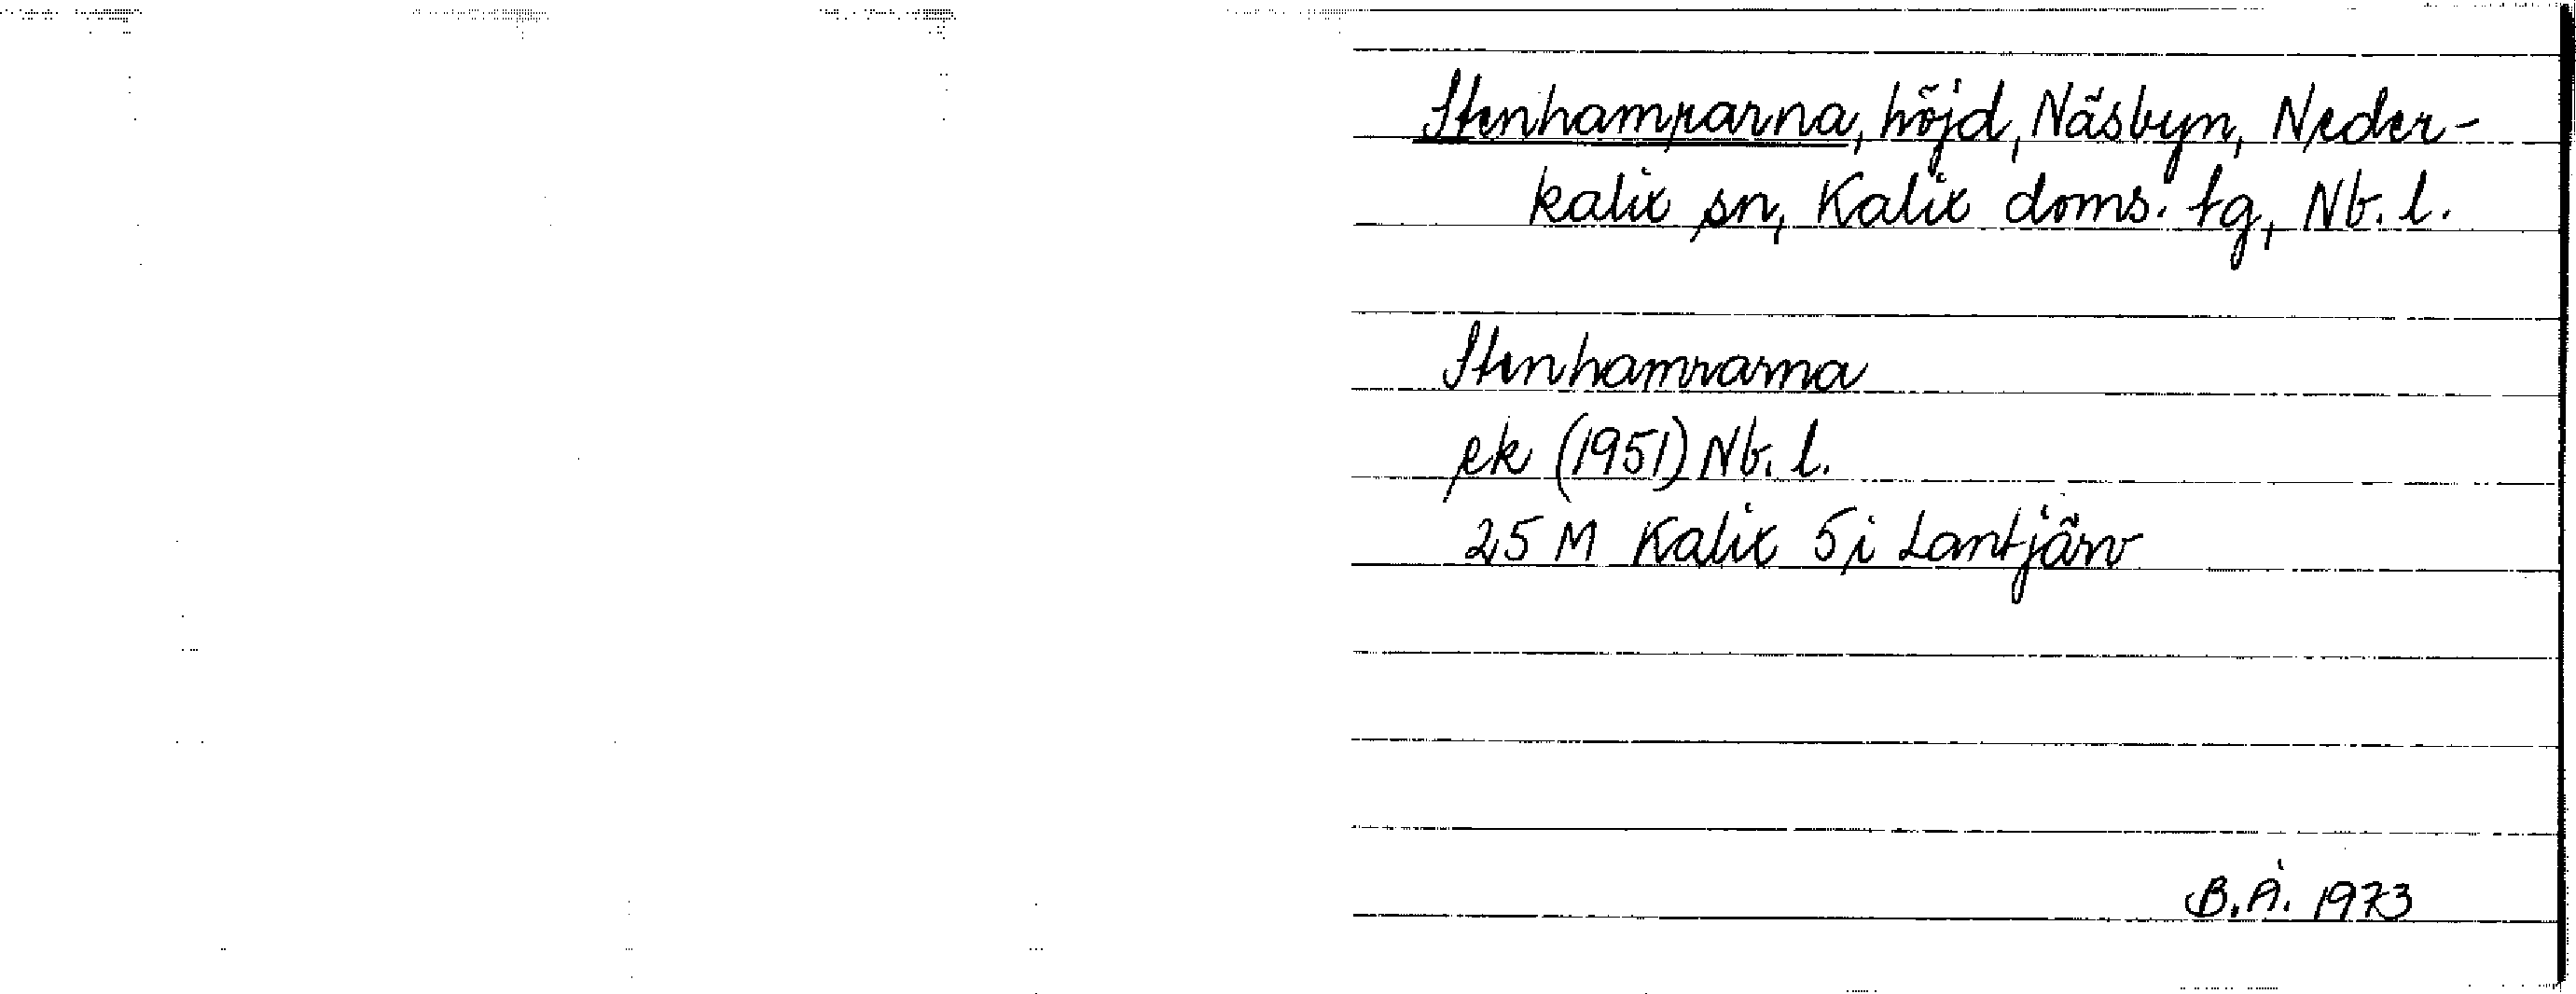 Stenhamrarna, höjd, Näsbyn, Neder-
kalix sn, Kalix doms. tg, Nb. l.
Stenhamrarna
ek (1951) Nb. l.
25 M Kalix 5i Lantjärv
B.Å. 1973